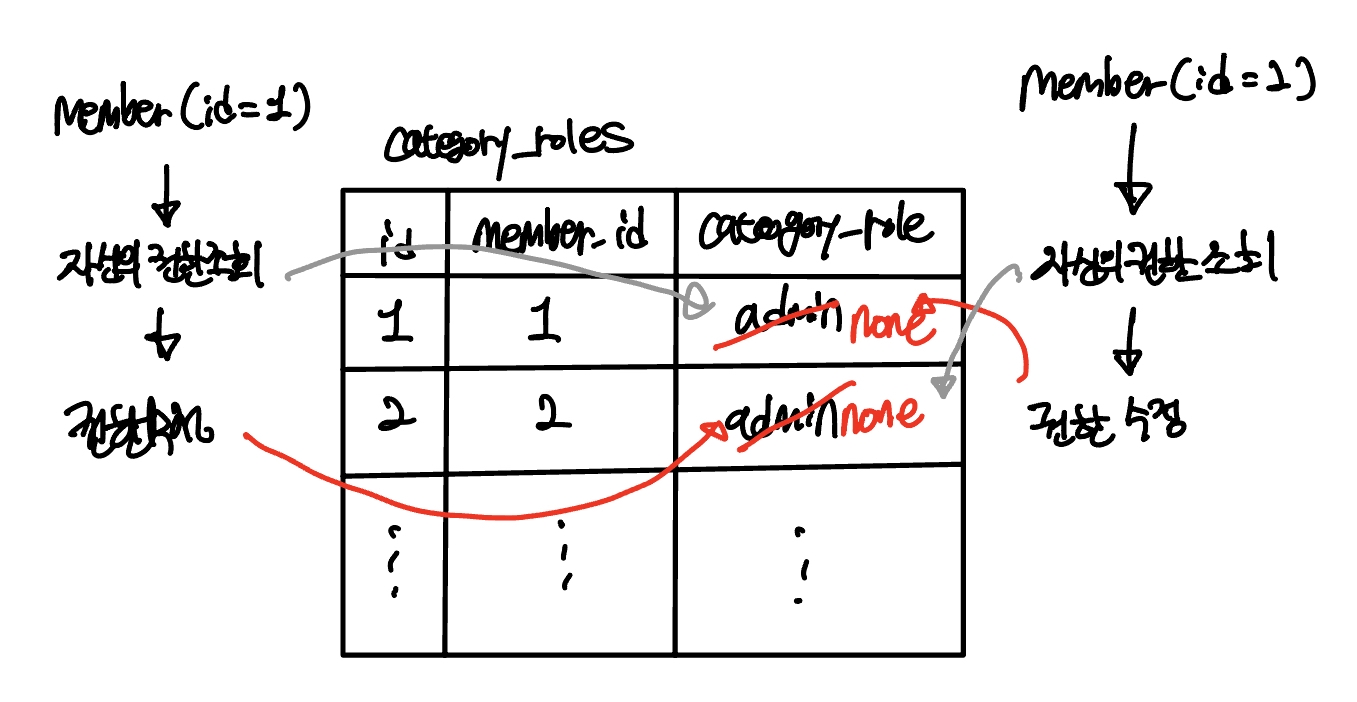 Member(id=1)
자신의 권한조회
권한수정
category_roles
id member_id category_role
1 1 admin none
2 2 admin none
Member(id=2)
자신의 권한 조회
권한 수정